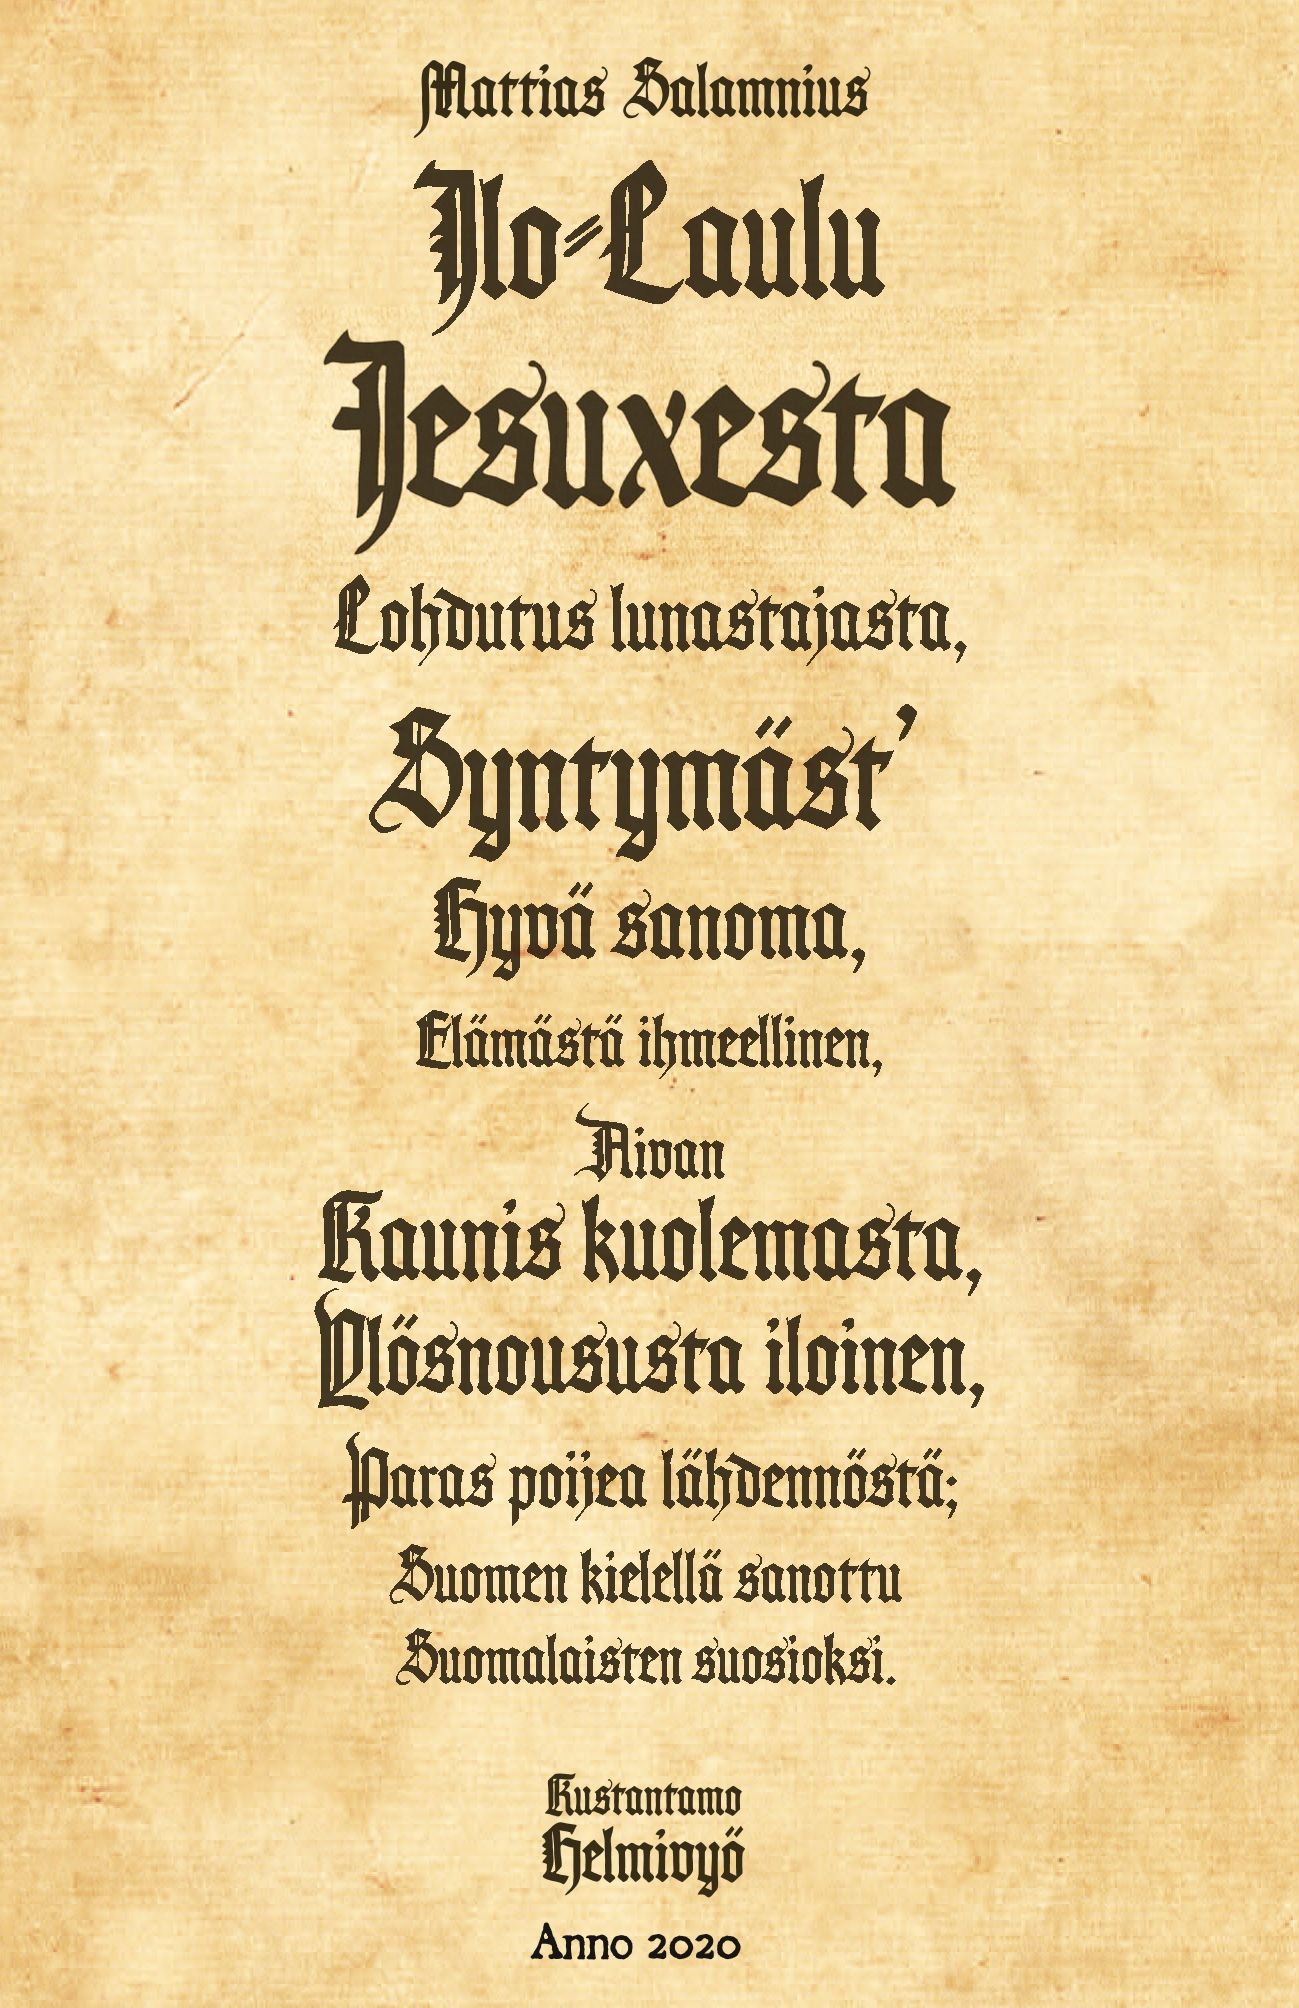 Mattias Salamnius
Ilo-Laulu
Jesuxesta
Lohdutus lunastajasta,
Syntymäst'
Hyvä sanoma,
Elämästä ihmeellinen,
Aivan
Kaunis kuolemasta,
Ylösnoususta iloinen,
Paras poijea lähdennöstä;
Suomen kielellä sanottu
Suomalaisten suosioksi.
Kustantamo
Helmivyö
Anno 2020